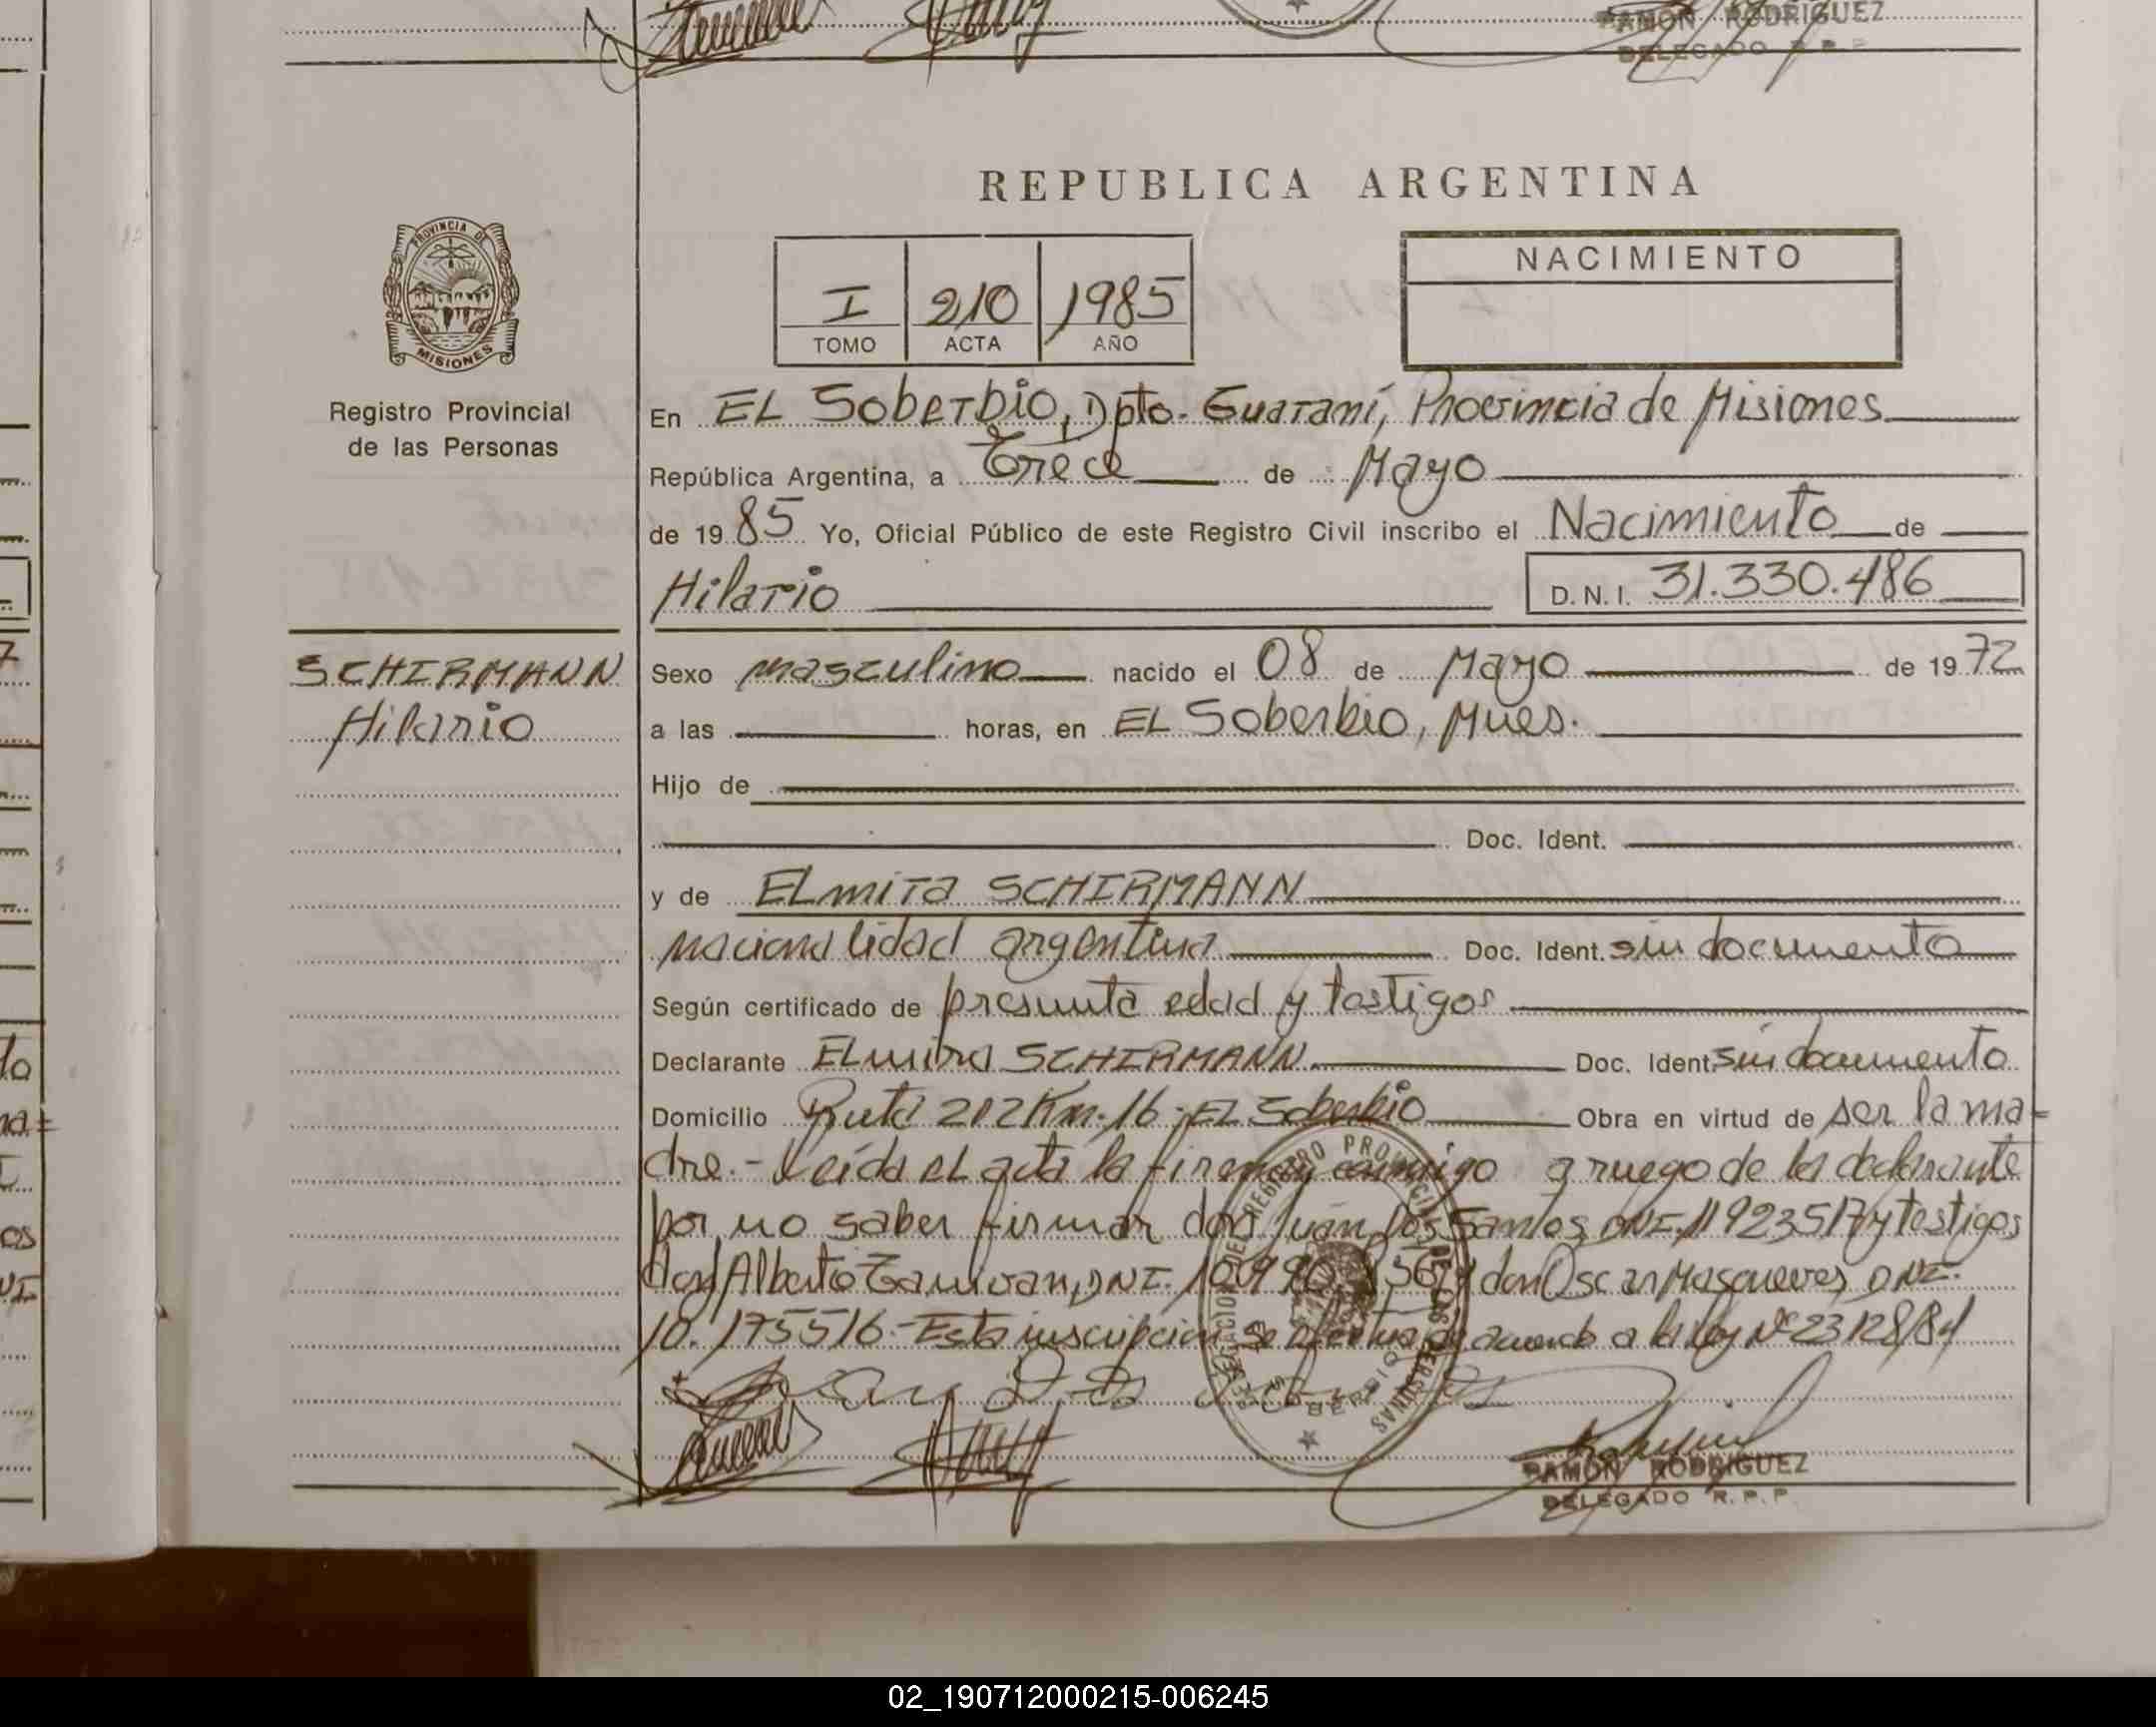 RAMON RODRIGUEZ
DELEGADO R. P. P.
REPUBLICA ARGENTINA
PROVINCIA DE
MISIONES
Registro Provincial
de las Personas
I 210 1985
TOMO ACTA AÑO
NACIMIENTO
En EL Soberbio, Dpto. Guaraní, Provincia de Misiones
República Argentina, a Trece de Mayo
de 1985 Yo, Oficial Público de este Registro Civil inscribo el Nacimiento de
Hilario D.N.I. 31.330.486
SCHIRMANN
Hilario
Sexo masculino nacido el 08 de Mayo de 1972
a las horas, en EL Soberbio, Mnes.
Hijo de
Doc. Ident.
y de ELmira SCHIRMANN
nacionalidad argentina Doc. Ident. sin documento
Según certificado de presunta edad y testigos
Declarante ELmira SCHIRMANN Doc. Ident. sin documento
Domicilio Ruta 212 Km. 16 - EL Soberbio Obra en virtud de ser la ma=
dre.- Leída el acta la firman conmigo a ruego de la declarante
por no saber firmar don Juan Dos Santos, DNI. 11923517 y testigos
don Alberto DNI. y don Oscar DNI.
10.175516.- Esta inscripcion se efectua de acuerdo a la ley Nº 23128/84
DELEGACION DEL REGISTRO PROVINCIAL DE LAS PERSONAS
RAMON RODRIGUEZ
DELEGADO R. P. P.
02_190712000215-006245